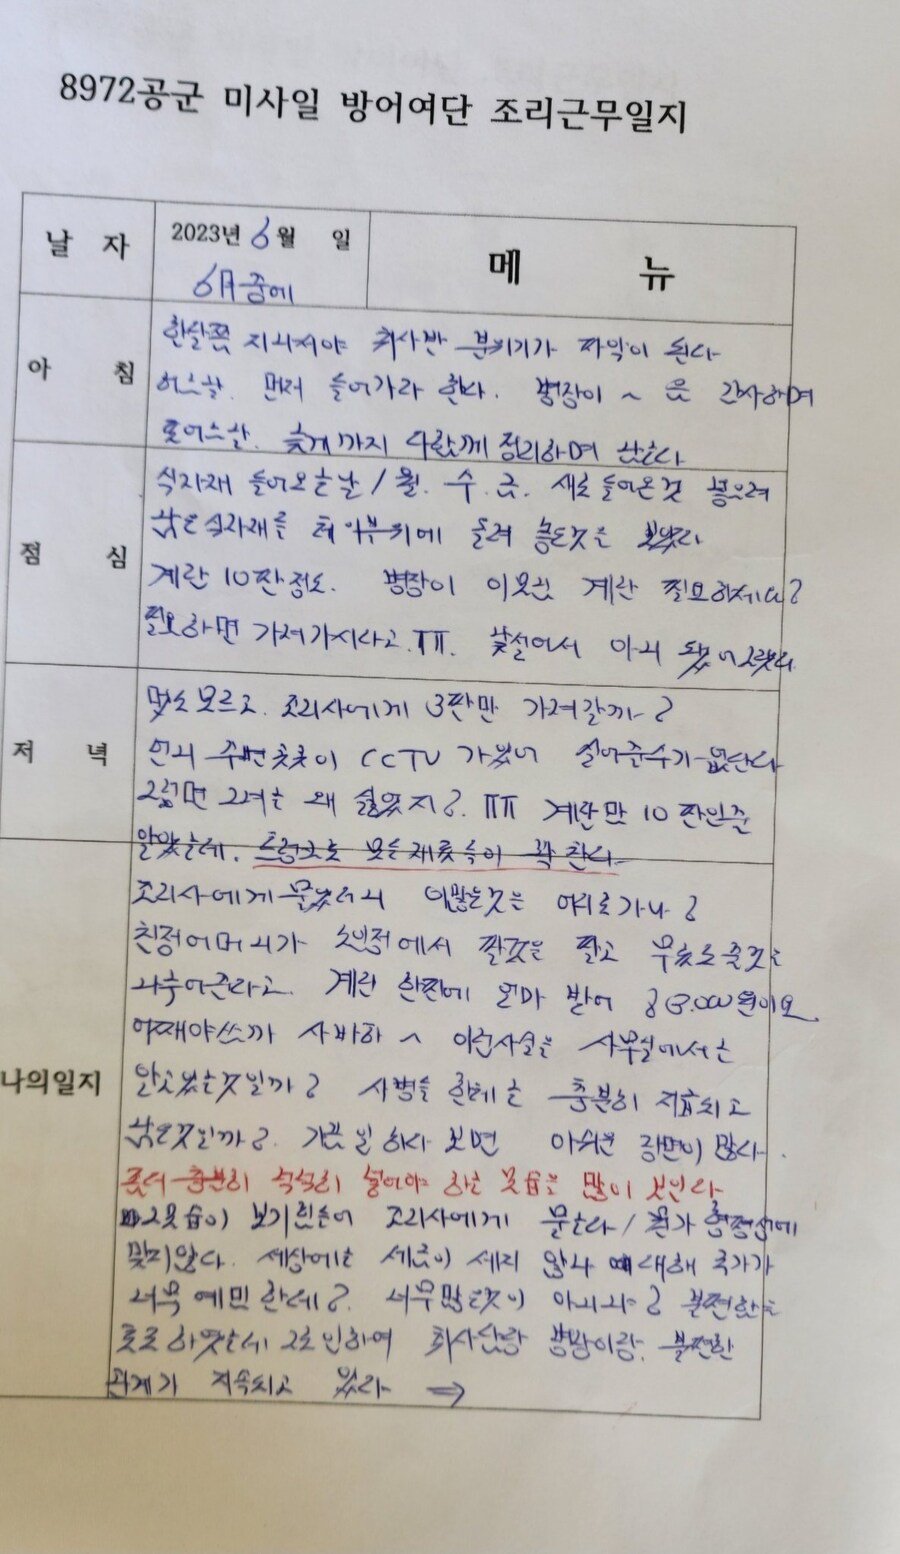 8972공군 미사일 방어여단 조리근무일지
날 자
2023년 6월 일
6月중에
메 뉴
아 침
한달쯤 지나서야 취사반 분위기가 파악이 된다
먼저 들어가라 한다. 병장이 ~ 은 간사하며
늦게까지 정리하며
점 심
식자재 들어오는날 / 월. 수. 금. 새로 들어온것 넣으려
남은식자재를
계란 10판정도. 병장이 이모님 계란 필요하세요?
필요하면 가져가시라고. ㅠㅠ. 낯설어서 아니 됐어 그랬다
저 녁
멋도모르고. 조리사에게 3판만 가져갈까?
주변곳곳이 CCTV 가있어 실어준수가 없단다
그러면 그녀는 왜 실었지? ㅠㅠ 계란만 10판인줄
알았는데. 트렁크로 모든재료들이 꽉 찬다
나의일지
조리사에게물었더니 이많은것은 어디로가나?
친정어머니가 노인정에서 팔것은 팔고 무료로줄것은
나누어준다고. 계란 한판에 얼마 받어? 3.000원이요
어째야쓰까 사바하 ~ 이런사실은 사무실에서는
알고있는것일까? 사병들한테는 충분히 지급되고
남은것일까? 가끔 일하다 보면 아쉬운 장면이 많다.
좀더 충분히 넣어야 하는 모습은 많이 보인다
그모습이 조리사에게 묻는다 / 뭔가 형평성에
맞지않다. 세상에는 세금이 세지 않나 국가가
너무 예민한데? 너무많은것이 아니냐? 불편한
그로인하여 불편한
관계가 지속되고 있다 ⇒